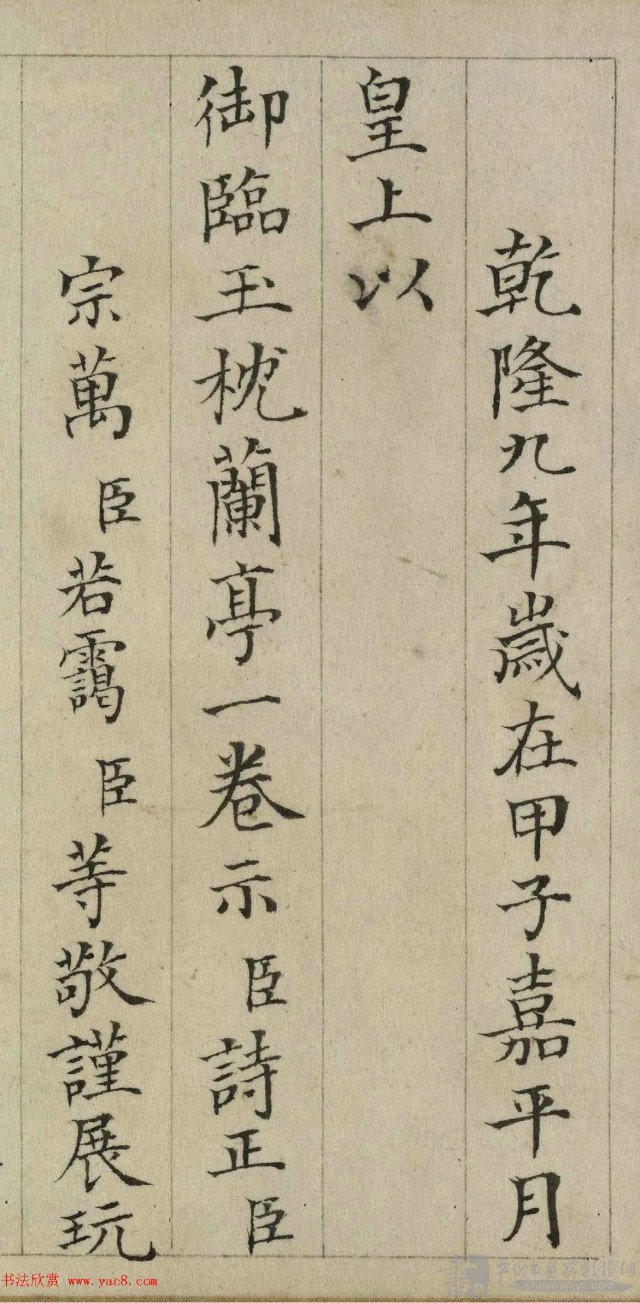 乾隆九年歲在甲子嘉平月
皇上以
御臨玉枕蘭亭一卷示臣詩正臣
宗萬臣若靄臣等敬謹展玩
书法欣赏 www.yac8.com